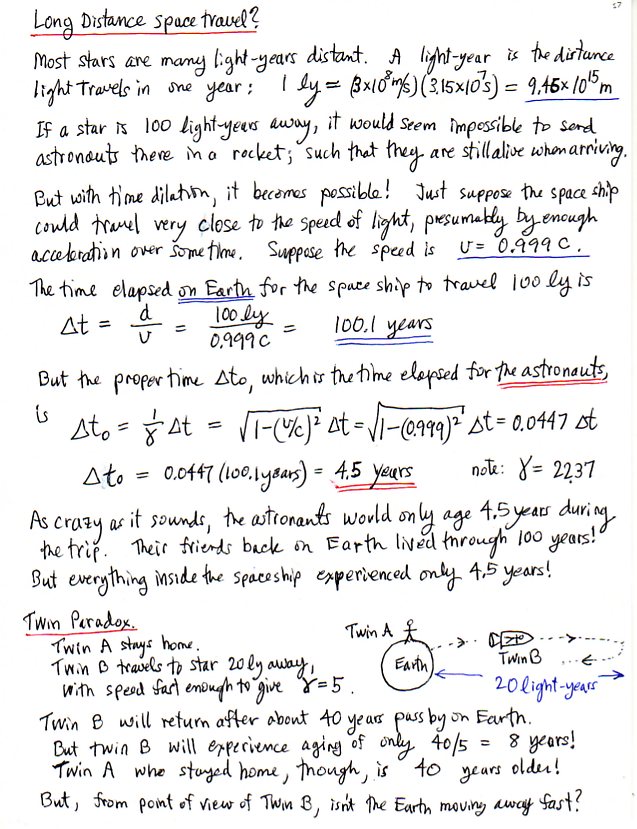 17
Long Distance space travel?
Most stars are many light-years distant. A light-year is the distance
light travels in one year: 1 ly = (3x10⁸ m/s)(3.15x10⁷s) = 9.45x10¹⁵ m
If a star is 100 light-years away, it would seem impossible to send
astronauts there in a rocket; such that they are still alive when arriving.
But with time dilation, it becomes possible! Just suppose the space ship
could travel very close to the speed of light, presumably by enough
acceleration over some time. Suppose the speed is v = 0.999 c.
The time elapsed on Earth for the space ship to travel 100 ly is
Δt = d/v = 100 ly/0.999 c = 100.1 years
But the proper time Δt₀, which is the time elapsed for the astronauts,
is Δt₀ = 1/γ Δt = √(1-(v/c)²) Δt = √(1-(0.999)²) Δt = 0.0447 Δt
Δt₀ = 0.0447 (100.1 years) = 4.5 years note: γ = 22.37
As crazy as it sounds, the astronauts would only age 4.5 years during
the trip. Their friends back on Earth lived through 100 years!
But everything inside the spaceship experienced only 4.5 years!
Twin Paradox.
Twin A stays home.
Twin B travels to star 20 ly away,
with speed fast enough to give γ = 5.
Twin A
Earth
Twin B
20 light-years
Twin B will return after about 40 years pass by on Earth.
But twin B will experience aging of only 40/5 = 8 years!
Twin A who stayed home, though, is 40 years older!
But, from point of view of Twin B, isn't the Earth moving away fast?